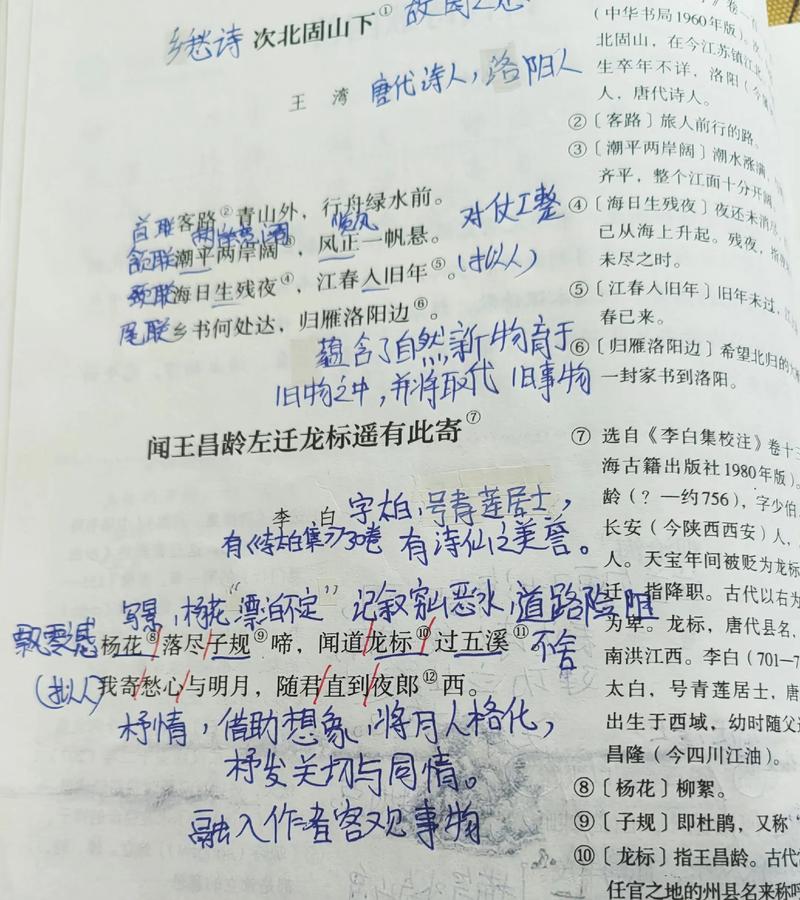 乡愁诗 次北固山下① 故园之思
王 湾 唐代诗人，洛阳人
首联 客路②青山外，行舟绿水前。
顺风 对仗工整
颔联 潮平两岸阔③，风正一帆悬。
颈联 海日生残夜④，江春入旧年⑤。(拟人)
尾联 乡书何处达，归雁洛阳边⑥。
蕴含了自然新物育于
旧物之中，并将取代 旧事物
闻王昌龄左迁龙标遥有此寄⑦
李 白 字太白，号青莲居士，
有《李太白集》30卷 有诗仙之美誉。
写景，杨花“漂泊不定” 记叙穷山恶水，道路险阻
飘零感 杨花⑧/落尽/子规⑨啼，闻道/龙标⑩/过五溪⑪ 不舍
(拟人) 我寄/愁心/与明月，随君/直到/夜郎⑫西。
抒情，借助想象，将月人格化，
抒发关切与同情。
融入作者客观事物
卷一百
(中华书局1960年版)。次
北固山，在今江苏镇江北
生卒年不详，洛阳（今属
人，唐代诗人。
②〔客路〕旅人前行的路。
③〔潮平两岸阔〕潮水涨满
齐平，整个江面十分开阔
④〔海日生残夜〕夜还未消尽
已从海上升起。残夜，指
未尽之时。
⑤〔江春入旧年〕旧年未过，
春已来。
⑥〔归雁洛阳边〕希望北归的
一封家书到洛阳。
⑦ 选自《李白集校注》卷十三
海古籍出版社1980年版)。
龄（？—约756），字少伯
长安（今陕西西安）人，
人。天宝年间被贬为龙标
迁，指降职。古代以右为
为卑。龙标，唐代县名，
南洪江西。李白（701—7
太白，号青莲居士，唐
出生于西域，幼时随父迁
昌隆（今四川江油）。
⑧〔杨花〕柳絮。
⑨〔子规〕即杜鹃，又称“
⑩〔龙标〕指王昌龄。古代常
任官之地的州县名来称呼